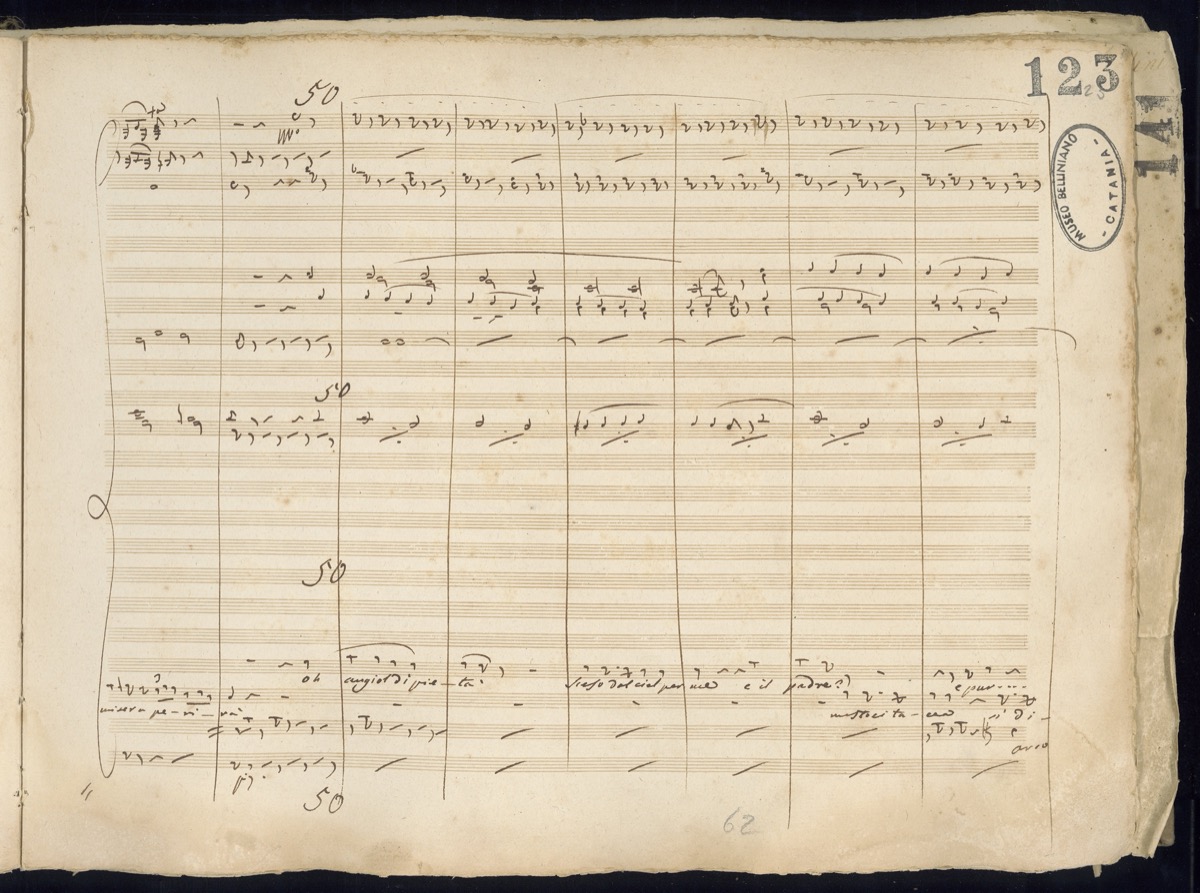 123
141
MUSEO BELLINIANO
- CATANIA -
50
50
50
oh angiol di pie-ta! sceso dal ciel per me e il padre? e pur....
misera pe-ri-rà mesto ei ta-cea si di-
arco
50
62